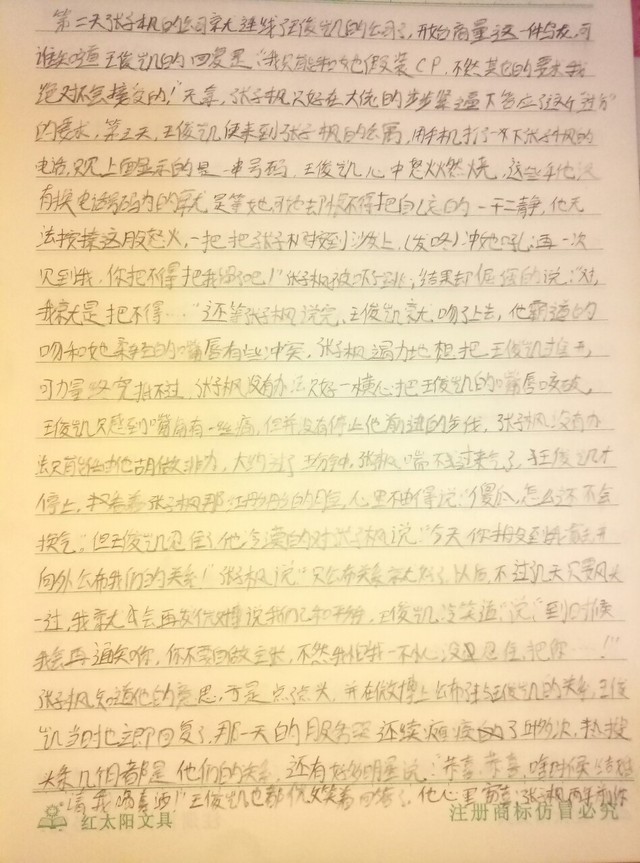 第二天张子枫的公司就连续了王俊凯的公司,开始商量这一件事,可
谁知道王俊凯的回复是:"我只能和她假装CP,不然其他的要求我
绝对不会接受的!"无奈,张子枫只好在大佬的步步紧逼下答应了这个
的要求,第三天,王俊凯便来到张子枫的公寓,用手机打了一下张子枫的
电话,只见上面显示的是一串号码,王俊凯心中怒火燃烧,这些年他没
有换电话号码为的就是等她,可她却恨不得把自己的一干二静,他无
法按揍这股怒火,一把把张子枫到沙发上,(发咚)冲她吼:再一次
见到我,你把不得把我吧!"张子枫被吓一跳,结果却倔强的说:"对,
我就是把不得……"还等张子枫说完,王俊凯就吻了上去,他霸道的
吻和她柔的嘴唇有些冲突,张子枫竭力地想把王俊凯推开,
可力量终究抵不过,张子枫没有办法只好一横心把王俊凯的嘴唇咬破,
王俊凯只感到嘴角有一丝痛,但并没有停止他前进的步伐,张子枫没有办
法只能任由他胡做非为,大约过了五分钟,张子枫喘不过来气了,王俊凯才
停止,看着张子枫那红彤彤的脸,心里不由得说:"傻瓜,怎么还不会
换气。"但王俊凯忍住了他冷漠的对张子枫说:"今天你
向外公布我们的关系!"张子枫说:"只公布关系就好了,以后不过几天只要风头
一过,我就会再发微博说我们和平分,王俊凯冷笑道说:"到时候
我会再通知你,你不要自做主张,不然我把我一不小心没忍住,把你……!"
张子枫知道他的意思,于是点点头,并在微博上公布与王俊凯的关系,王俊
凯当时也立即回复了,那一天的服务器还续瘫痪了次,热搜
头条几个都是他们的关系,还有好多明星说:"恭喜,恭喜,啥时候结婚
请我喝喜酒!"王俊凯也都微笑着回答了,他心里张子枫两年前你
红太阳文具
注册商标仿冒必究